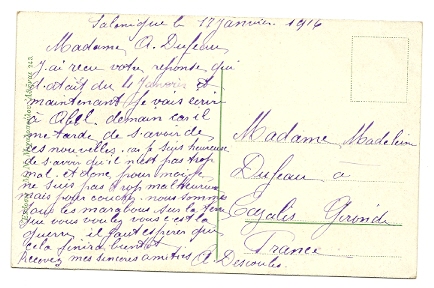 Salonique le 17 Janvier 1916
Madame A. Dufeau
J'ai recu votre reponse qui
datait du 11 Janvier et
maintenant je vais ecrir
à Abel demain car il
me tarde de savoir de
ces nouvelles. car je suis heureuse
de savoir qu'il n'est pas trop
mal. et donc pour moi je
ne suis pas trop malheureux
mais pour coucher nous sommes
tous les sur la terre
que vous voulez vous c'est la
guerre il faut esperer que
cela finira bientot
Recevez mes sinceres amitiés A. Descoules
Madame Madelein
Dufeau à
Cazalis Gironde
France